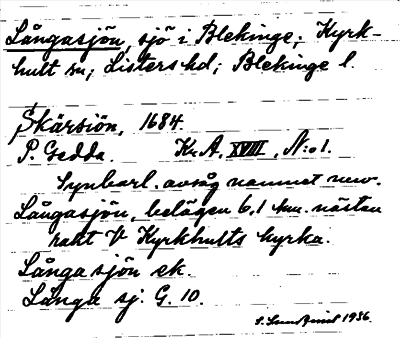 Långasjön, sjö i Blekinge; Kyrk-
hult sn; Listers hd; Blekinge l.
Skärsiön, 1684.
P. Gedda. Kr.A. XVIII, N:o 1.
Synbarl. avsåg namnet nuv.
Långasjön, belägen 6,1 km. nästan
rakt V Kyrkhults kyrka.
Långasjön ek.
Långa sj. G. 10.
1936.